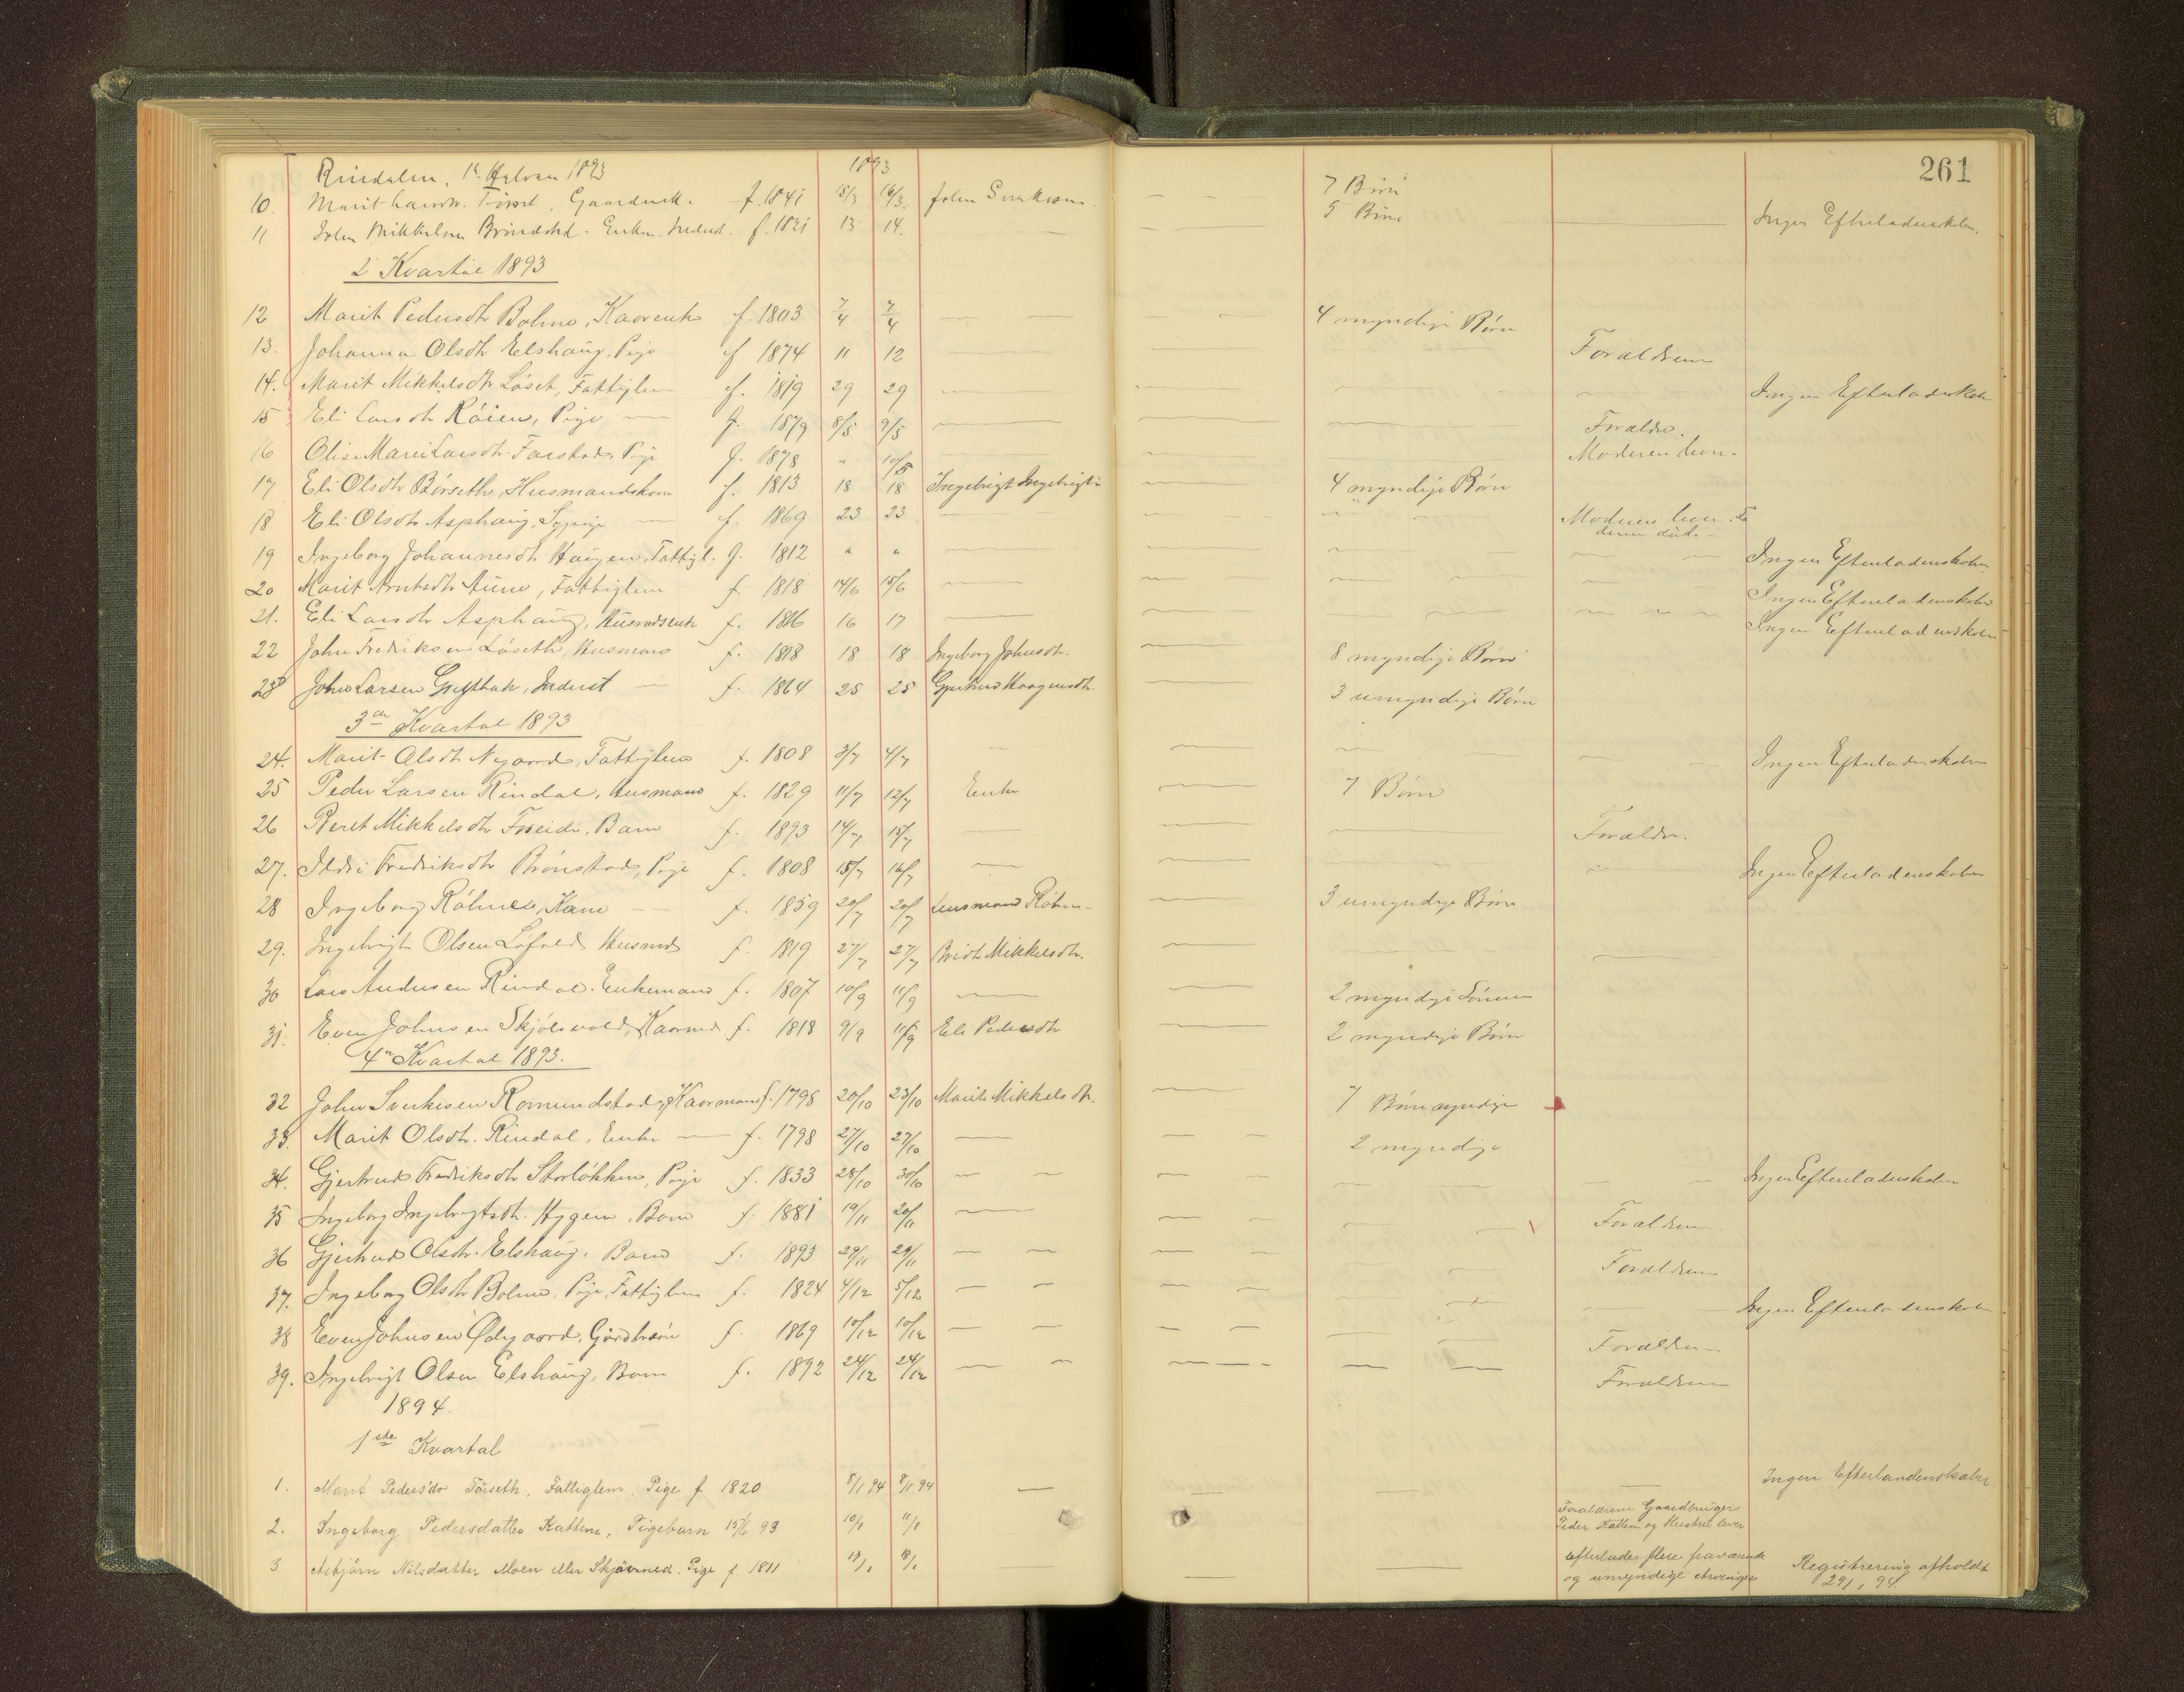 261
Rindalen, 1ste 1893
1893
10. Marit f. 1841 15/3 16/3. John — — 7 Børn
11 John Mikkelsen f. 1821 13 14. — — 5 Børn — Ingen Efterladenskaber.
2 Kvartal 1893
12 Marit Pedersdtr Bolme, Kaarenke f. 1803 7/4 7/4 — — 4 myndige Børn
13. Johanna Olsdtr Elshaug, Pige f 1874 11 12 Forældrene
14. Marit Mikkelsdtr Löset, Fattiglem f. 1819 29 29 — — — — Ingen Efterladensk
15 Eli Larsdtr Röien, Pige — f. 1879 8/5 9/5 — — — Forældre.
16 Olise Marie Larsdtr. Farstad, Pige f. 1878 " 10/5 — — Moderen lever.
17 Eli Olsdtr Börseth, Husmandskone f. 1813 18 18 Ingebrigt Ingebrigts — 4 myndige Børn
18 Eli Olsdtr Asphaug, Sypige — f. 1869 23 23 — — — Moderen lever. Fa
deren död. —
19 Ingeborg Johannesdtr Haugen, Fattigl. f. 1812 " " — — — — Ingen Efterladenskaber
20 Marit Arntsdtr Aune, Fattiglem f. 1818 14/6 15/6 — — — — Ingen Efterladenskaber
21. Eli Larsdtr Asphaug, Husmdsenke f. 1816 16 17 — — — — Ingen Efterladenskaber
22 John Fredriksen Löseth, Husmand f. 1818 18 18 Ingeborg Johnsdtr. — 8 myndige Børn
23 John Larsen, Inderst — f. 1864 25 25 Gjertrud Haagensdtr. — 3 umyndige Børn
3die Kvartal 1893
24. Marit Olsdtr Nygaard, Fattiglem f. 1808 3/7 4/7 — — — — Ingen Efterladenskaber
25 Peder Larsen Rindal, Husmand f. 1829 11/7 12/7 Enke — 7 Børn
26 Beret Mikkelsdtr, Barn f. 1893 14/7 15/7 — — — Forældre.
27. Ildri Fredriksdtr Brönstad, Pige f. 1808 15/7 16/7 — — Ingen Efterladenskaber
28 Ingeborg, Kone — f. 1859 20/7 20/7 Husmand — 3 umyndige Børn
29. Ingebrigt Olsen Löfald Husmd f. 1819 27/7 27/7 Mikkelsdtr. — — —
30 Lars Andersen Rindal. Enkemand f. 1807 10/9 11/9 — — 2 myndige Sönner
31. Even Johnsen Skjölsvold, Kaarmd f. 1818 9/9 11/9 Eli Pedersdtr — 2 myndige Børn
4de Kvartal 1893.
32 John Sverkesen Romundstad, Kaarmand f. 1798 20/10 23/10 Marit Mikkelsdtr. — 7 Børn myndige
33. Marit Olsdtr. Rindal, Enke — f. 1798 27/10 27/10 — — — 2 myndige
34. Gjertrud Fredriksdtr Storlökken, Pige f. 1833 28/10 30/10 — — — — Ingen Efterladenskaber
35 Ingeborg Ingebrigtsdtr. Hygen, Barn f. 1881 19/11 20/11 — — — — Forældrene.
36 Gjertrud Olsdtr. Elshaug, Barn f. 1893 29/11 29/11 — — — — Forældrene
37. Ingeborg Olsdtr Bolme, Pige, Fattiglem f. 1824 4/12 5/12 — — — — Ingen Efterladenskaber
38 Even Johnsen Ödegaard, f. 1869 10/12 10/12 — — — — Forældre —
39. Ingebrigt Olsen Elshaug, Barn f. 1892 24/12 24/12 — — — — — — — Forældrene
1894.
1ste Kvartal
1. Marit Pedersdr Törseth, Fattiglem. Pige f 1820 8/1 94 8/1 94 — — — — Ingen Efterlandenskaber
2. Ingeborg Pedersdatter Kattem, Pigebarn 93 10/1 11/1 — Forældrene Gaardbruger
Peder Kattem og Hustru lever
3 Asbjörn Nilsdatter Moen eller Skjövmed. Pige f 1811 17/1 18/1 — — — efterlader flere fraværende
og umyndige Arvinger
Registrering afholdt
29/1 94